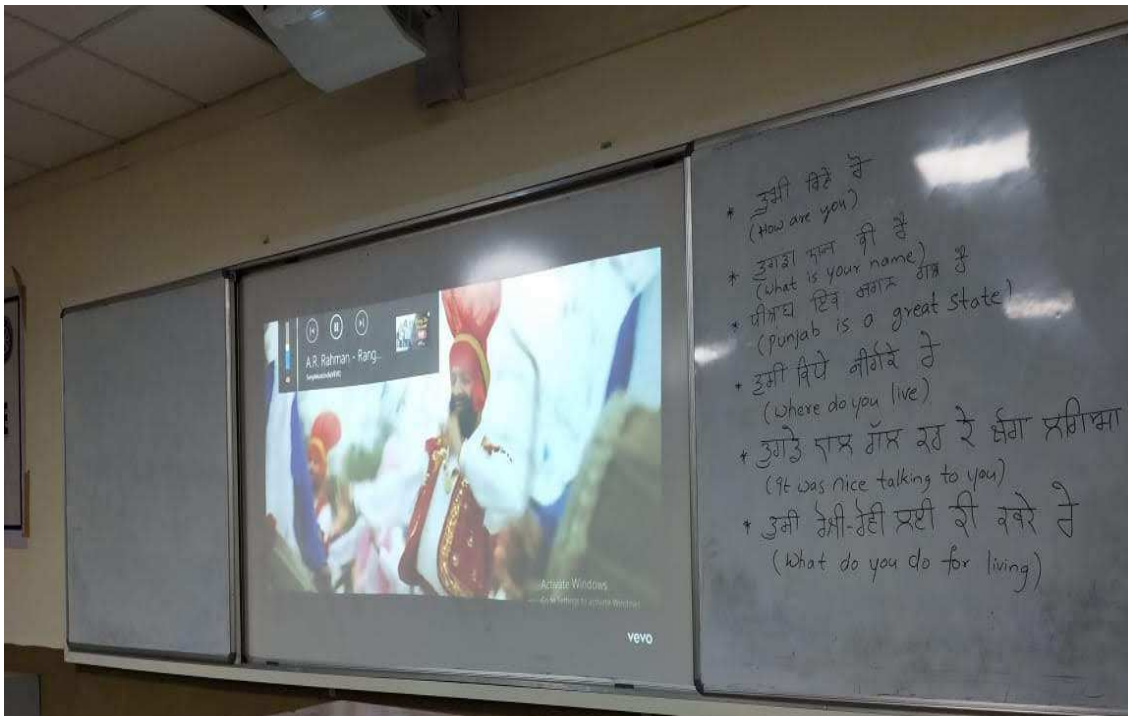 A.R. Rahman - Rang...
Activate Windows
Go to Settings to activate Windows.
vevo
* ਤੁਸੀ ਕਿਵੇਂ ਹੋ
(How are you)
* ਤੁਹਾਡਾ ਨਾਮ ਕੀ ਹੈ
(what is your name)
* ਪੰਜਾਬ ਇਕ ਰਾਜ ਹੈ
(Punjab is a great state)
* ਤੁਸੀ ਕਿਥੇ ਰਹਿੰਦੇ ਹੋ
(where do you live)
* ਤੁਹਾਡੇ ਨਾਲ ਗੱਲ ਕਰ ਕੇ ਚੰਗਾ ਲਗਿਆ
(It was nice talking to you)
* ਤੁਸੀ ਰੋਜ਼ੀ-ਰੋਟੀ ਲਈ ਕੀ ਕਰਦੇ ਹੋ
(What do you do for living)